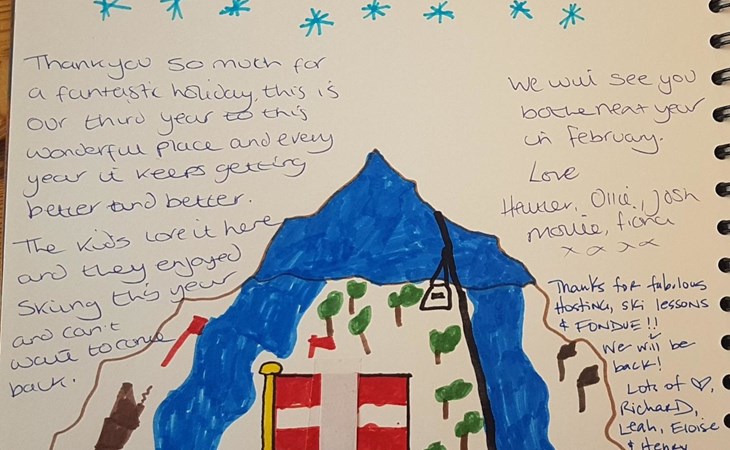 Thankyou so much for
a fantastic holiday, this is
our third year to this
wonderful place and every
year it keeps getting
better and better.
The kids love it here
and they enjoyed
Skiing this year
and can't
wait to come
back.
We will see you
both next year
in february.
Love
Ollie, Josh
mollie, fiona
x x x x
Thanks for fabulous
Hosting, ski lessons
& FONDUE!!
We will be
back!
Lots of ♡,
Richard,
Leah, Eloise
& Henry